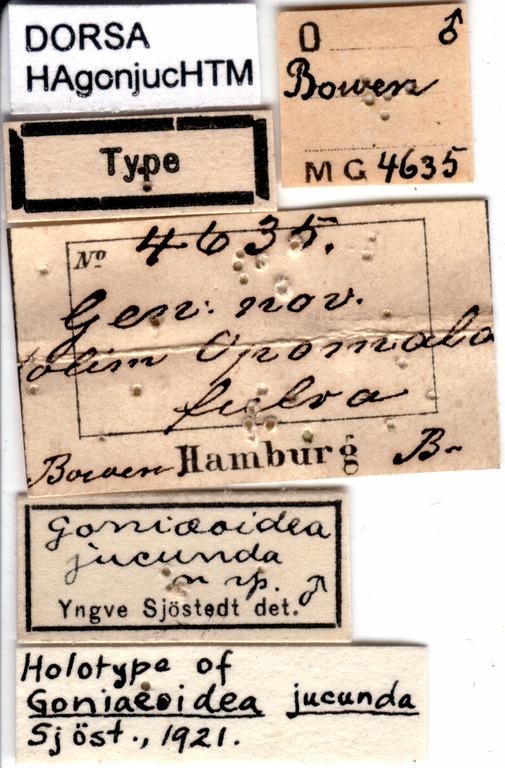 DORSA
HAgonjucHTM
O ♂
Bowen
MG 4635
Type
No 4635.
Gen: nov.
olim Opomala
fulva
Bowen Hamburg B.
Goniæoidea
jucunda
n sp.
Yngve Sjöstedt det. ♂
Holotype of
Goniaeoidea jucunda
Sjöst., 1921.